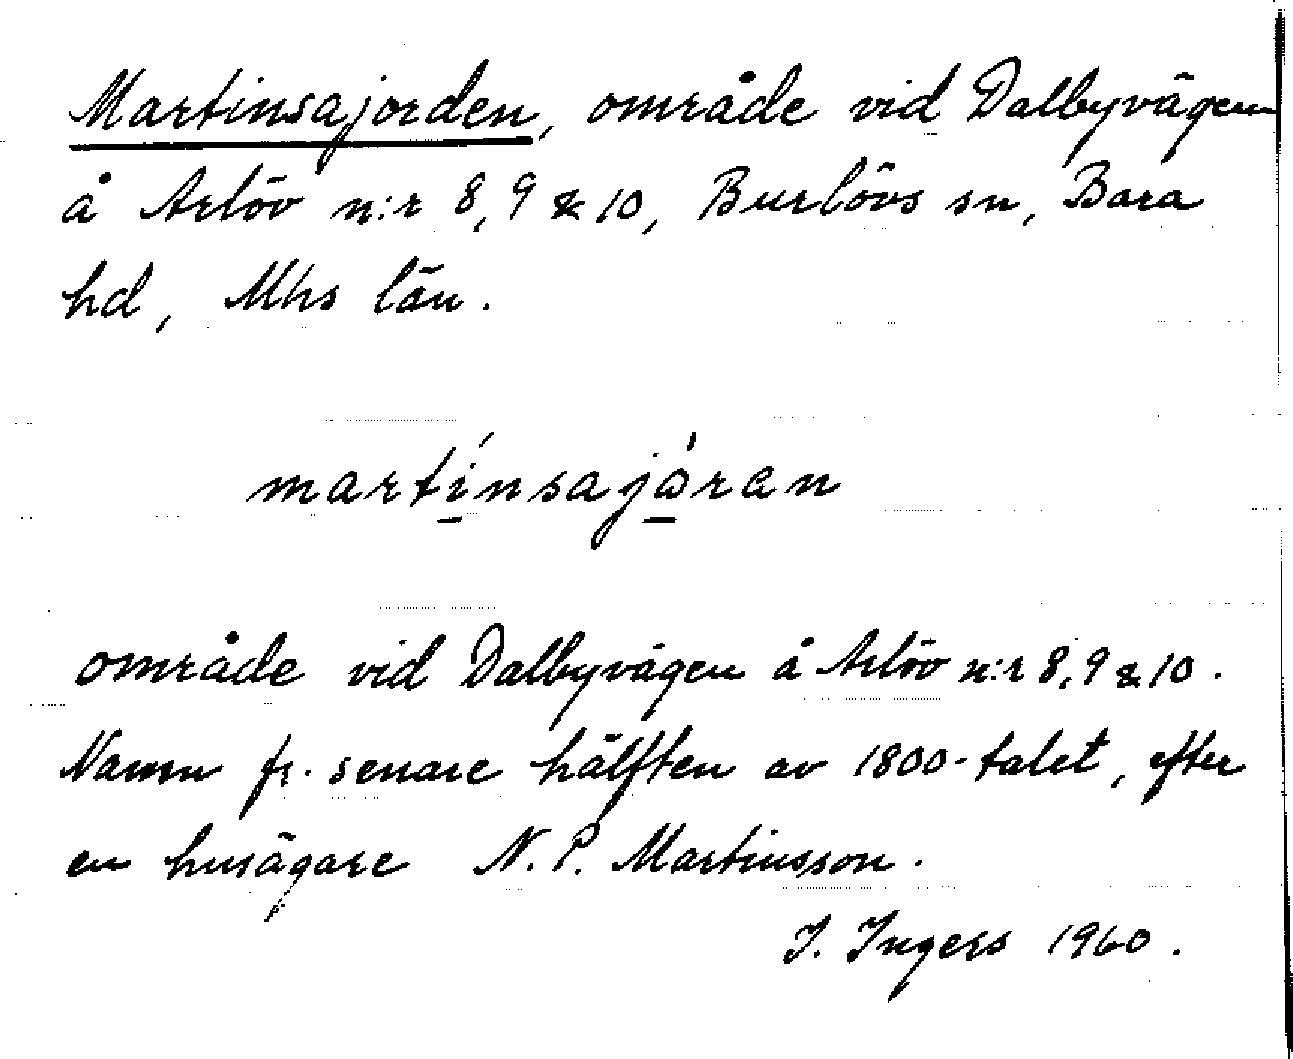 Martinsajorden, område vid Dalbyvägen
å Arlöv n:r 8, 9 & 10, Burlövs sn, Bara
hd, Mhs län.
martínsajòran
område vid Dalbyvägen å Arlöv n:r 8, 9 & 10.
Namn fr. senare hälften av 1800-talet, efter
en husägare N. P. Martinsson.
I. Ingers 1960.